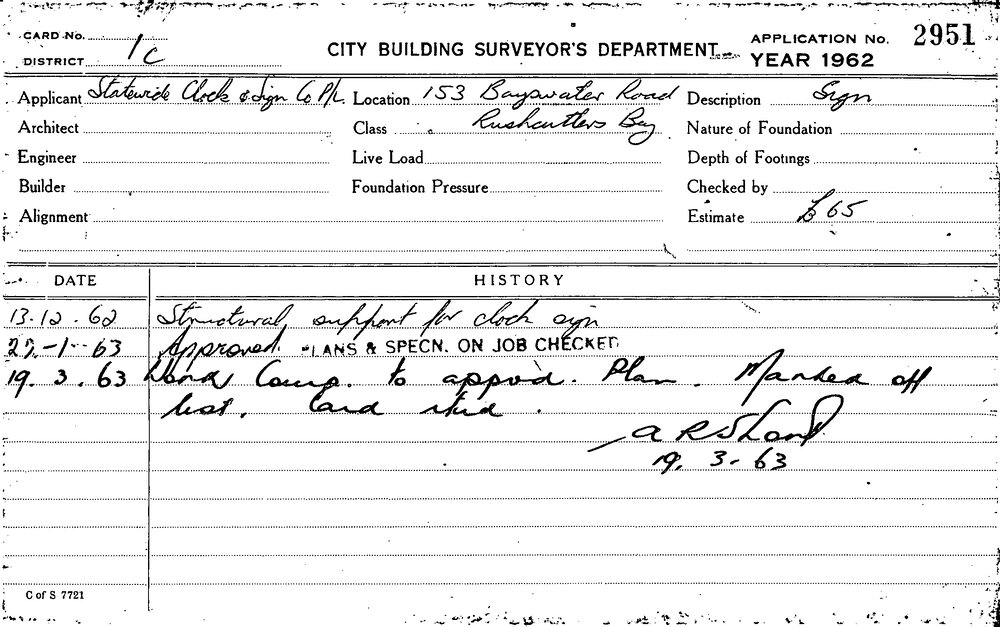 CARD No.
DISTRICT 1c
CITY BUILDING SURVEYOR'S DEPARTMENT
APPLICATION No. 2951
YEAR 1962
Applicant Statewide Clock & Sign Co P/L. Location 153 Bayswater Road Description Sign
Architect Class Rushcutters Bay Nature of Foundation
Engineer Live Load Depth of Footings
Builder Foundation Pressure Checked by
Alignment Estimate £65
DATE HISTORY
13.12.62 Structural support for clock sign
-1-63 Approved. PLANS & SPECN. ON JOB CHECKED
19.3.63 Work Comp. to appvd. Plan. Marked off
list. Card
A R
19.3.63
C of S 7721